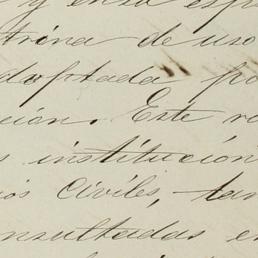 y
trina de uso
adaptada po
ción. Este r
s institución
ios Civiles, tan
nsultadas e